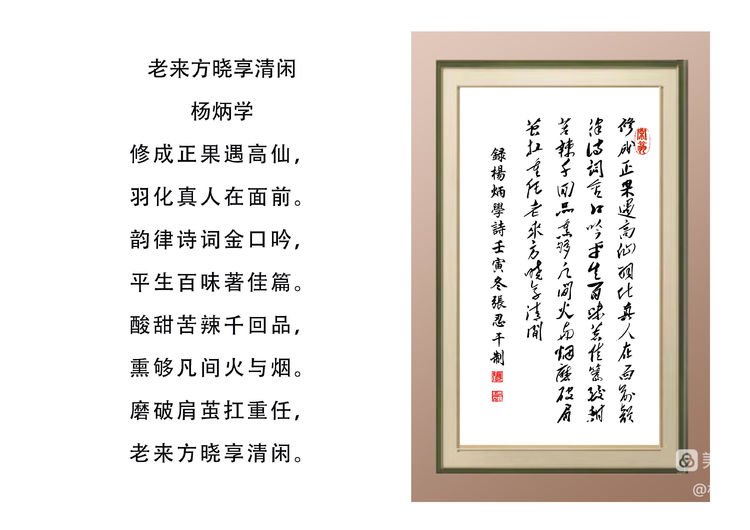 老来方晓享清闲
杨炳学
修成正果遇高仙，
羽化真人在面前。
韵律诗词金口吟，
平生百味著佳篇。
酸甜苦辣千回品，
熏够凡间火与烟。
磨破肩茧扛重任，
老来方晓享清闲。
修成正果遇高仙羽化真人在面前韵
律诗词金口吟平生百味著佳篇酸甜
苦辣千回品熏够凡间火与烟磨破肩
茧扛重任老来方晓享清闲
録楊炳學詩壬寅冬張忍干制
美
@